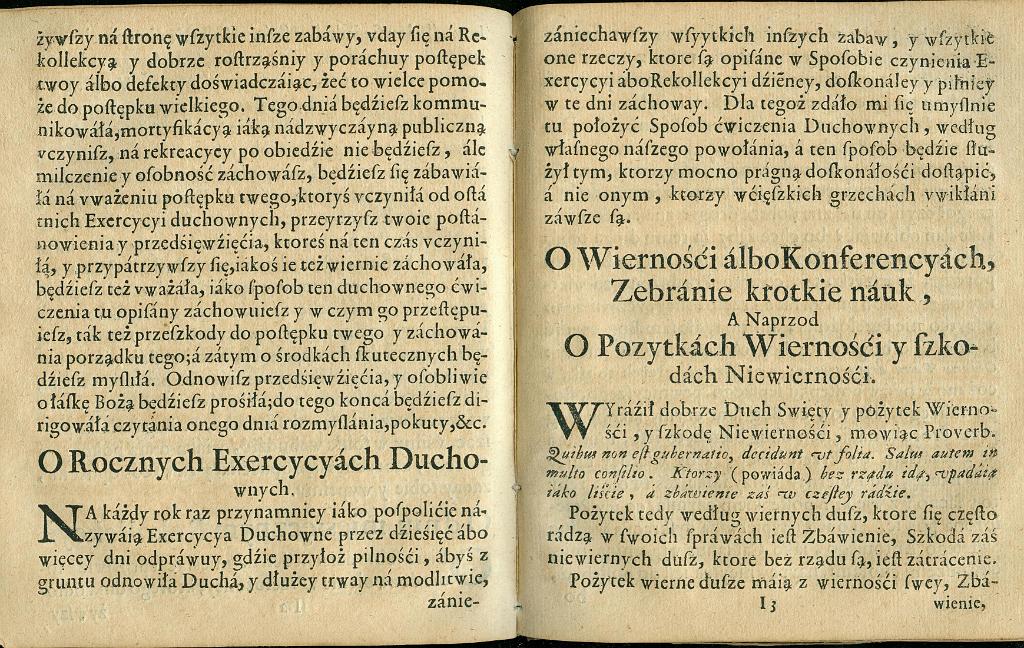 żywſzy ná ſtronę wſzytkie inſze zabáwy, vday ſię ná Re-
kollekcyą y dobrze roſtrząśniy y poráchuy poſtępek
twoy álbo defekty doświadczáiąc, żeć to wielce pomo-
że do poſtępku wielkiego. Tego dniá będźieſz kommu-
nikowáłá,mortyfikácyą iáką nádzwyczáyną publiczną
vczyniſz, ná rekreacyey po obiedźie nie będźieſz, ále
milczenie y oſobność záchowáſz, będźieſz ſię zábawiá-
łá ná vważeniu poſtępku twego,ktoryś vczyniłá od oſtá
tnich Exercycyi duchownych, przeyrzyſz twoie poſtá-
nowienia y przedśięwźięćia, ktoreś ná ten czás vczyni-
łą, y przypátrzywſzy ſię,iákoś ie też wiernie záchowáła,
będźieſz też vważáła, iáko ſpoſob ten duchownego ćwi-
czenia tu opiſány záchowuieſz y w czym go przeſtępu-
ieſz, ták też przeſzkody do poſtępku twego y záchowá-
nia porządku tego;á zátym o środkách ſkutecznych bę-
dźieſz myſliłá. Odnowiſz przedśięwźięćia, y oſobliwie
o łáſkę Bożą będźieſz prośiłá;do tego końcá będźieſz di-
rigowáłá czytánia onego dniá rozmyſlánia,pokuty,&c.
O Rocznych Exercycyách Ducho-
wnych.
NA káżdy rok raz przynamniey iáko poſpolićie ná-
zywáią Exercycya Duchowne przez dźieśięć ábo
więcey dni odpráwuy, gdźie przyłoż pilnośći, ábyś z
gruntu odnowiłá Duchá, y dłużey trway ná modlitwie,
zánie-
zániechawſzy wſyytkich inſzych zabaw, y wſzytkie
one rzeczy, ktore ſą opiſáne w Spoſobie czynienia E-
xercycyi ábo Rekollekcyi dźienney, doſkonáley y pilniey
w te dni záchoway. Dla tegoż zdáło mi ſię umyſlnie
tu położyć Spoſob ćwiczenia Duchownych, według
właſnego náſzego powołánia, á ten ſpoſob będźie ſłu-
żył tym, ktorzy mocno prágną doſkonáłośći doſtąpić,
á nie onym, ktorzy wćięſzkich grzechách vwikłáni
záwſze ſą.
O Wiernośći álbo Konferencyách,
Zebránie krotkie náuk,
A Naprzod
O Pozytkách Wiernośći y ſzko-
dách Niewiernośći.
WYráźił dobrze Duch Swięty y pożytek Wierno-
śći, y ſzkodę Niewiernośći, mowiąc Proverb.
Quibus non eſt gubernatio, decidunt vt folia. Salus autem in
multo conſilio. Ktorzy (powiáda) bez rządu idą, vpadáią
iáko liśćie, á zbáwienie záś w częſtey rádźie.
Pożytek tedy według wiernych duſz, ktore ſię częſto
rádzą w ſwoich ſpráwách ieſt Zbáwienie, Szkodá záś
niewiernych duſz, ktore bez rządu ſą, ieſt zátrácenie.
Pożytek wierne duſze máią z wiernośći ſwey, Zbá-
I3 wienie,